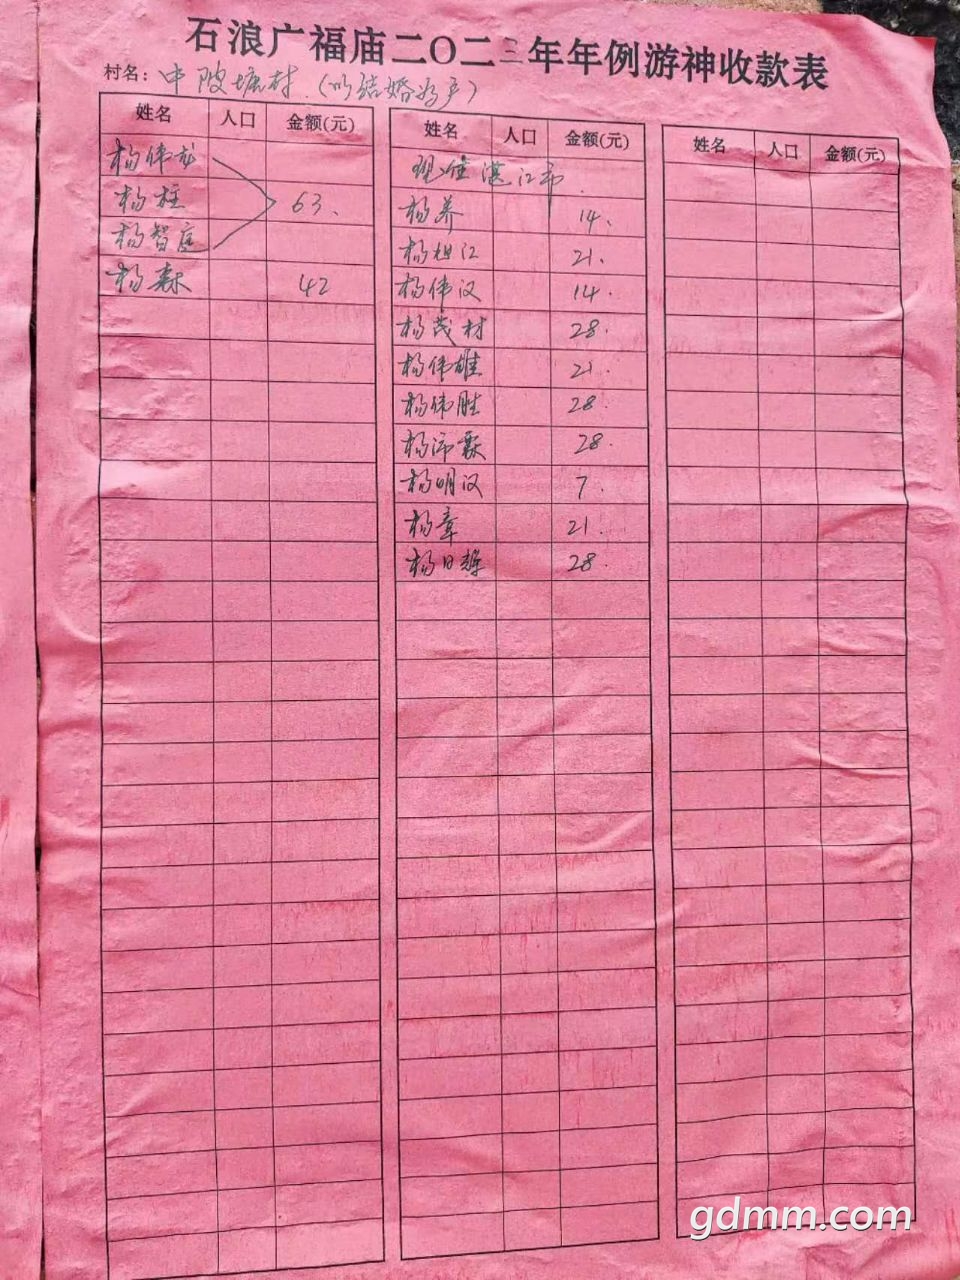 石浪广福庙二〇二三年年例游神收款表
村名：中陂塘村（以结婚为户）
姓名 人口 金额(元)
杨伟龙
杨柱 63、
杨智庭
杨森 42
姓名 人口 金额(元)
现住湛江市
杨养 14.
杨旭江 21.
杨伟汉 14.
杨茂材 28.
杨伟雄 21.
杨伟胜 28.
杨沛霖 28.
杨明汉 7.
杨章 21.
杨日 28.
姓名 人口 金额(元)
gdmm.com